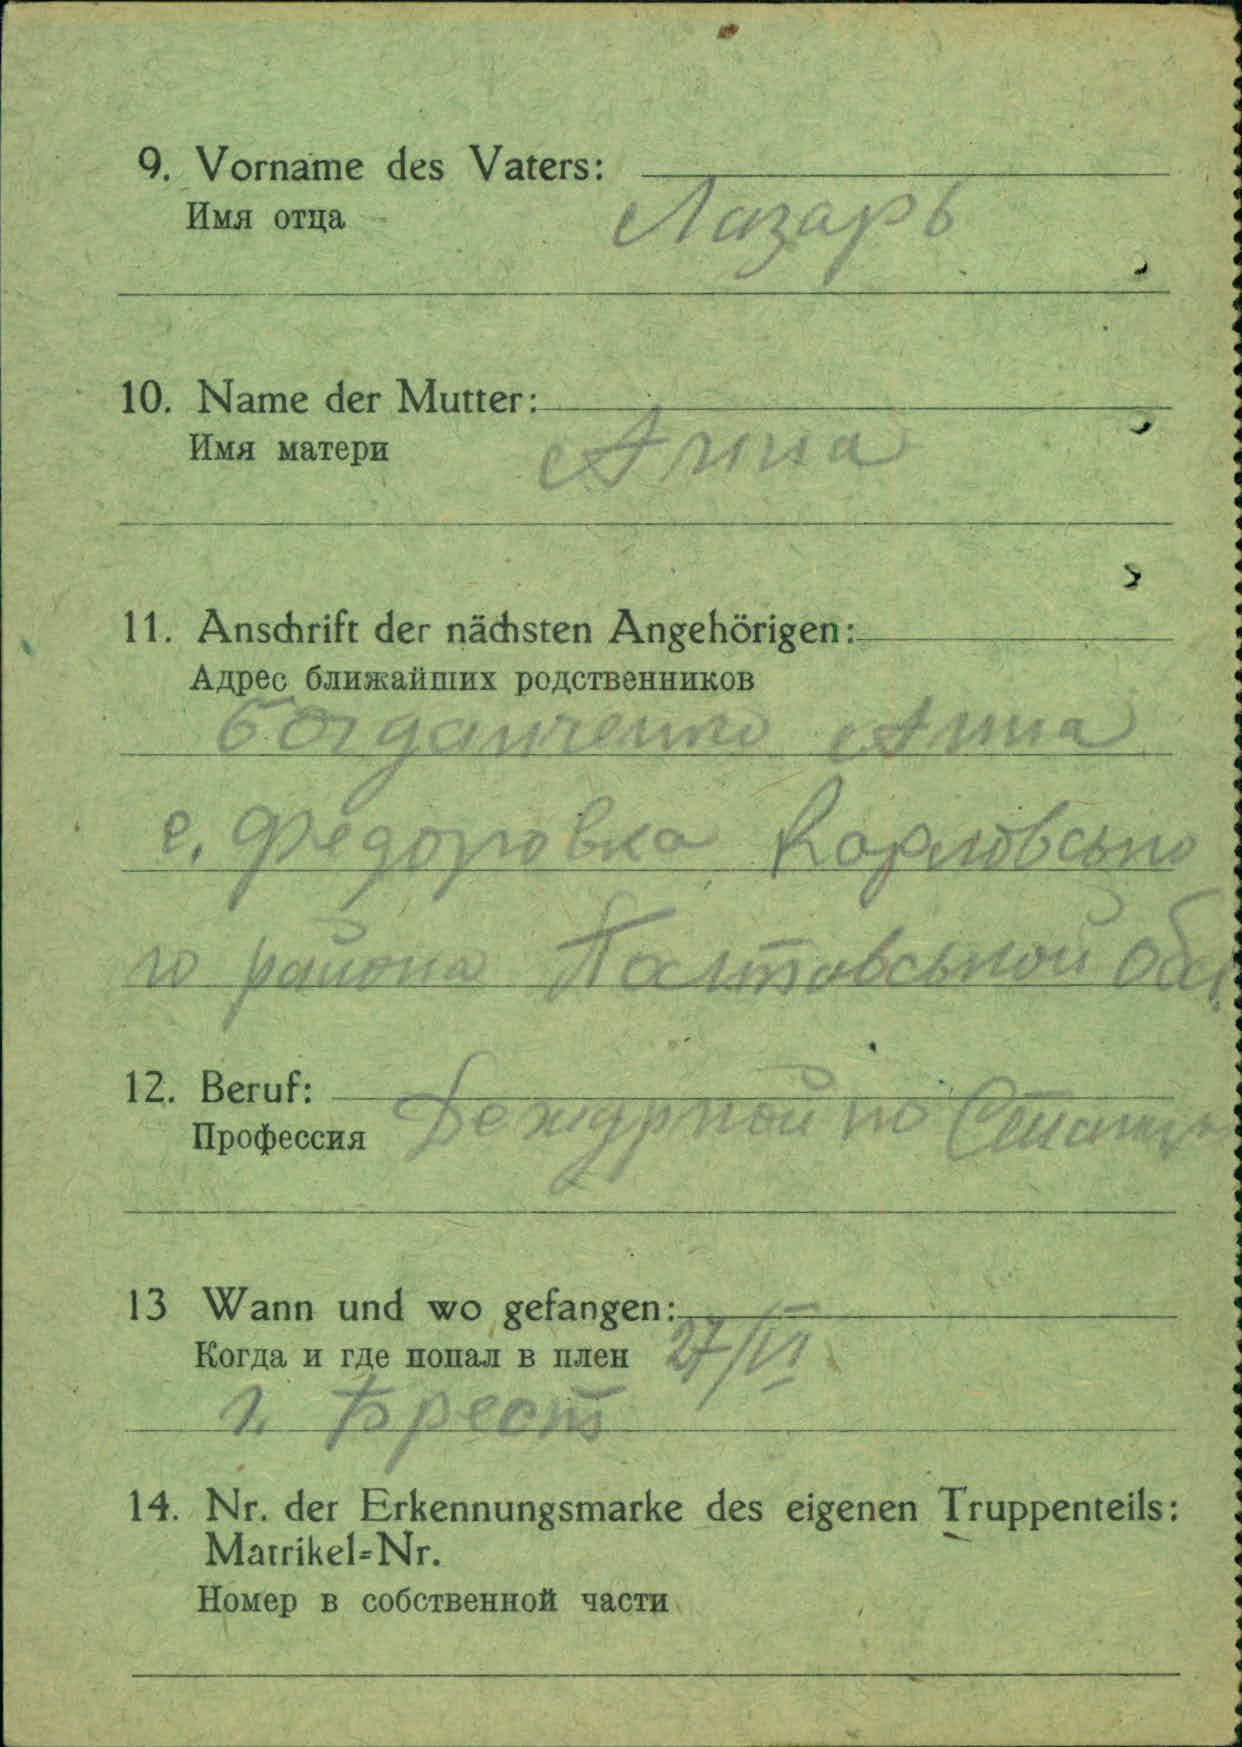 9. Vorname des Vaters:
Имя отца Лазарь
10. Name der Mutter:
Имя матери Анна
11. Anschrift der nächsten Angehörigen:
Адрес ближайших родственников
Богданченко Анна
с. Федоровка Карловсько
го района Полтовськой обл.
12. Beruf:
Профессия Дежурной по
13 Wann und wo gefangen:
Когда и где попал в плен 27/VI
г. Брест
14. Nr. der Erkennungsmarke des eigenen Truppenteils:
Matrikel=Nr.
Номер в собственной части